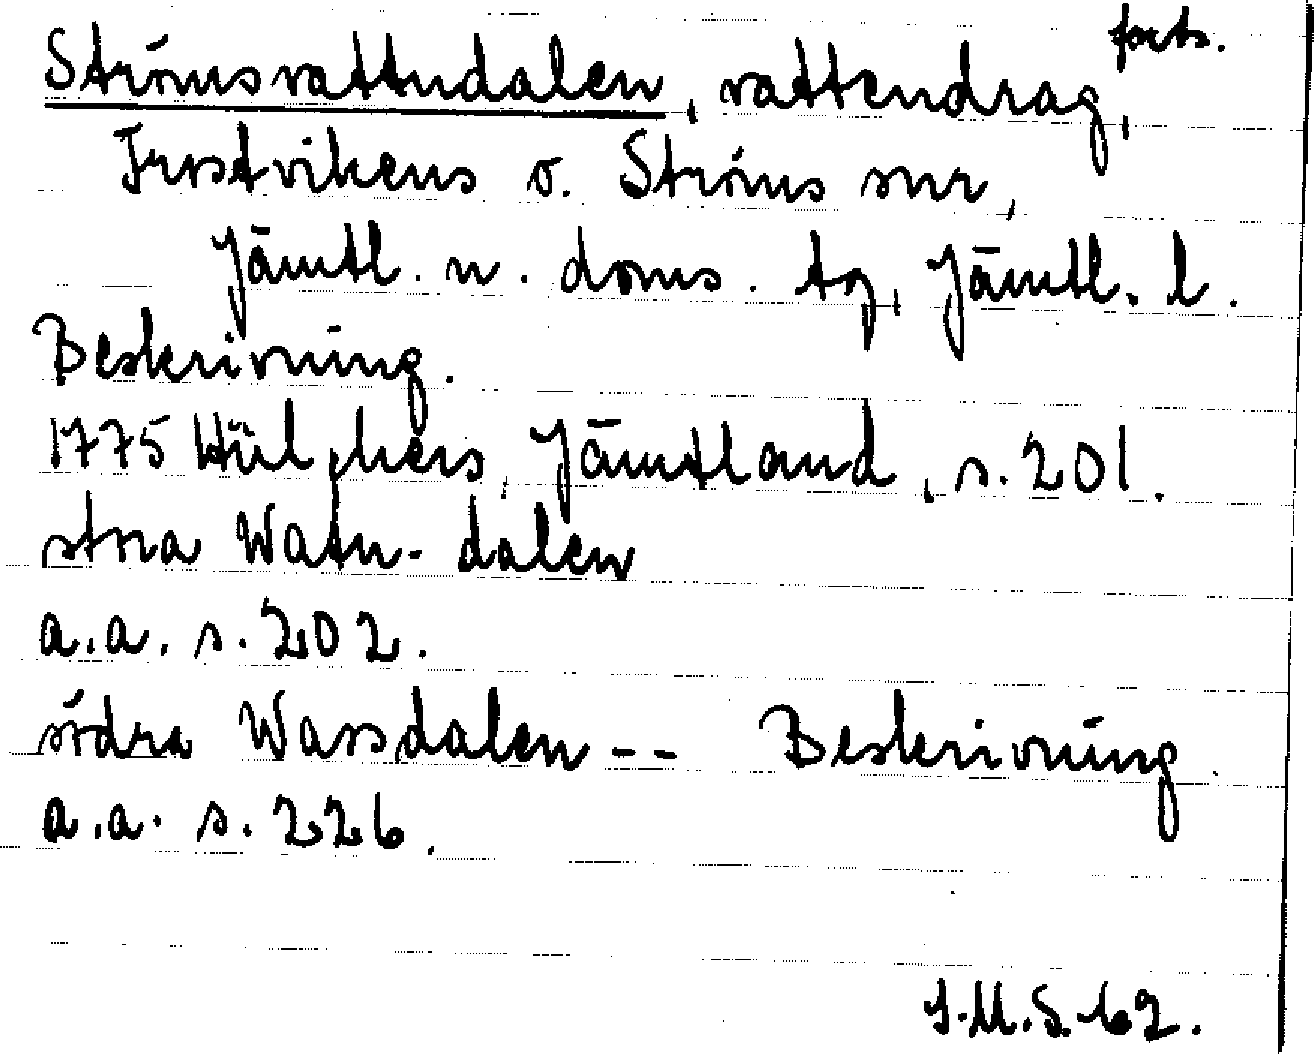 forts.
Strömsvattudalen, vattendrag,
Frostvikens o. Ströms snr,
Jämtl. n. doms. tg, Jämtl. l.
Beskrivning.
1775 Hülphers, Jämtland, s. 201.
stora Watu-dalen
a.a. s. 202.
södra Wassdalen -- Beskrivning
a.a. s. 226.
I.M.S. 62.